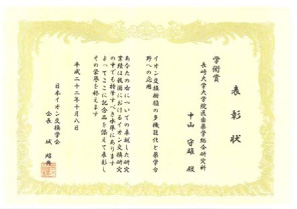 表彰状
学術賞
長崎大学大学院医歯薬学総合研究科
中山 守雄 殿
イオン交換樹脂の多機能化と薬学分
野への応用
あなたの右についての卓越した研究
業績は我国におけるイオン交換研究
の中でも特筆すべき水準にあります
よってここに記念品を添えて表彰し
その栄誉を称えます
平成二十二年十月八日
日本イオン交換学会
会長 城 昭典